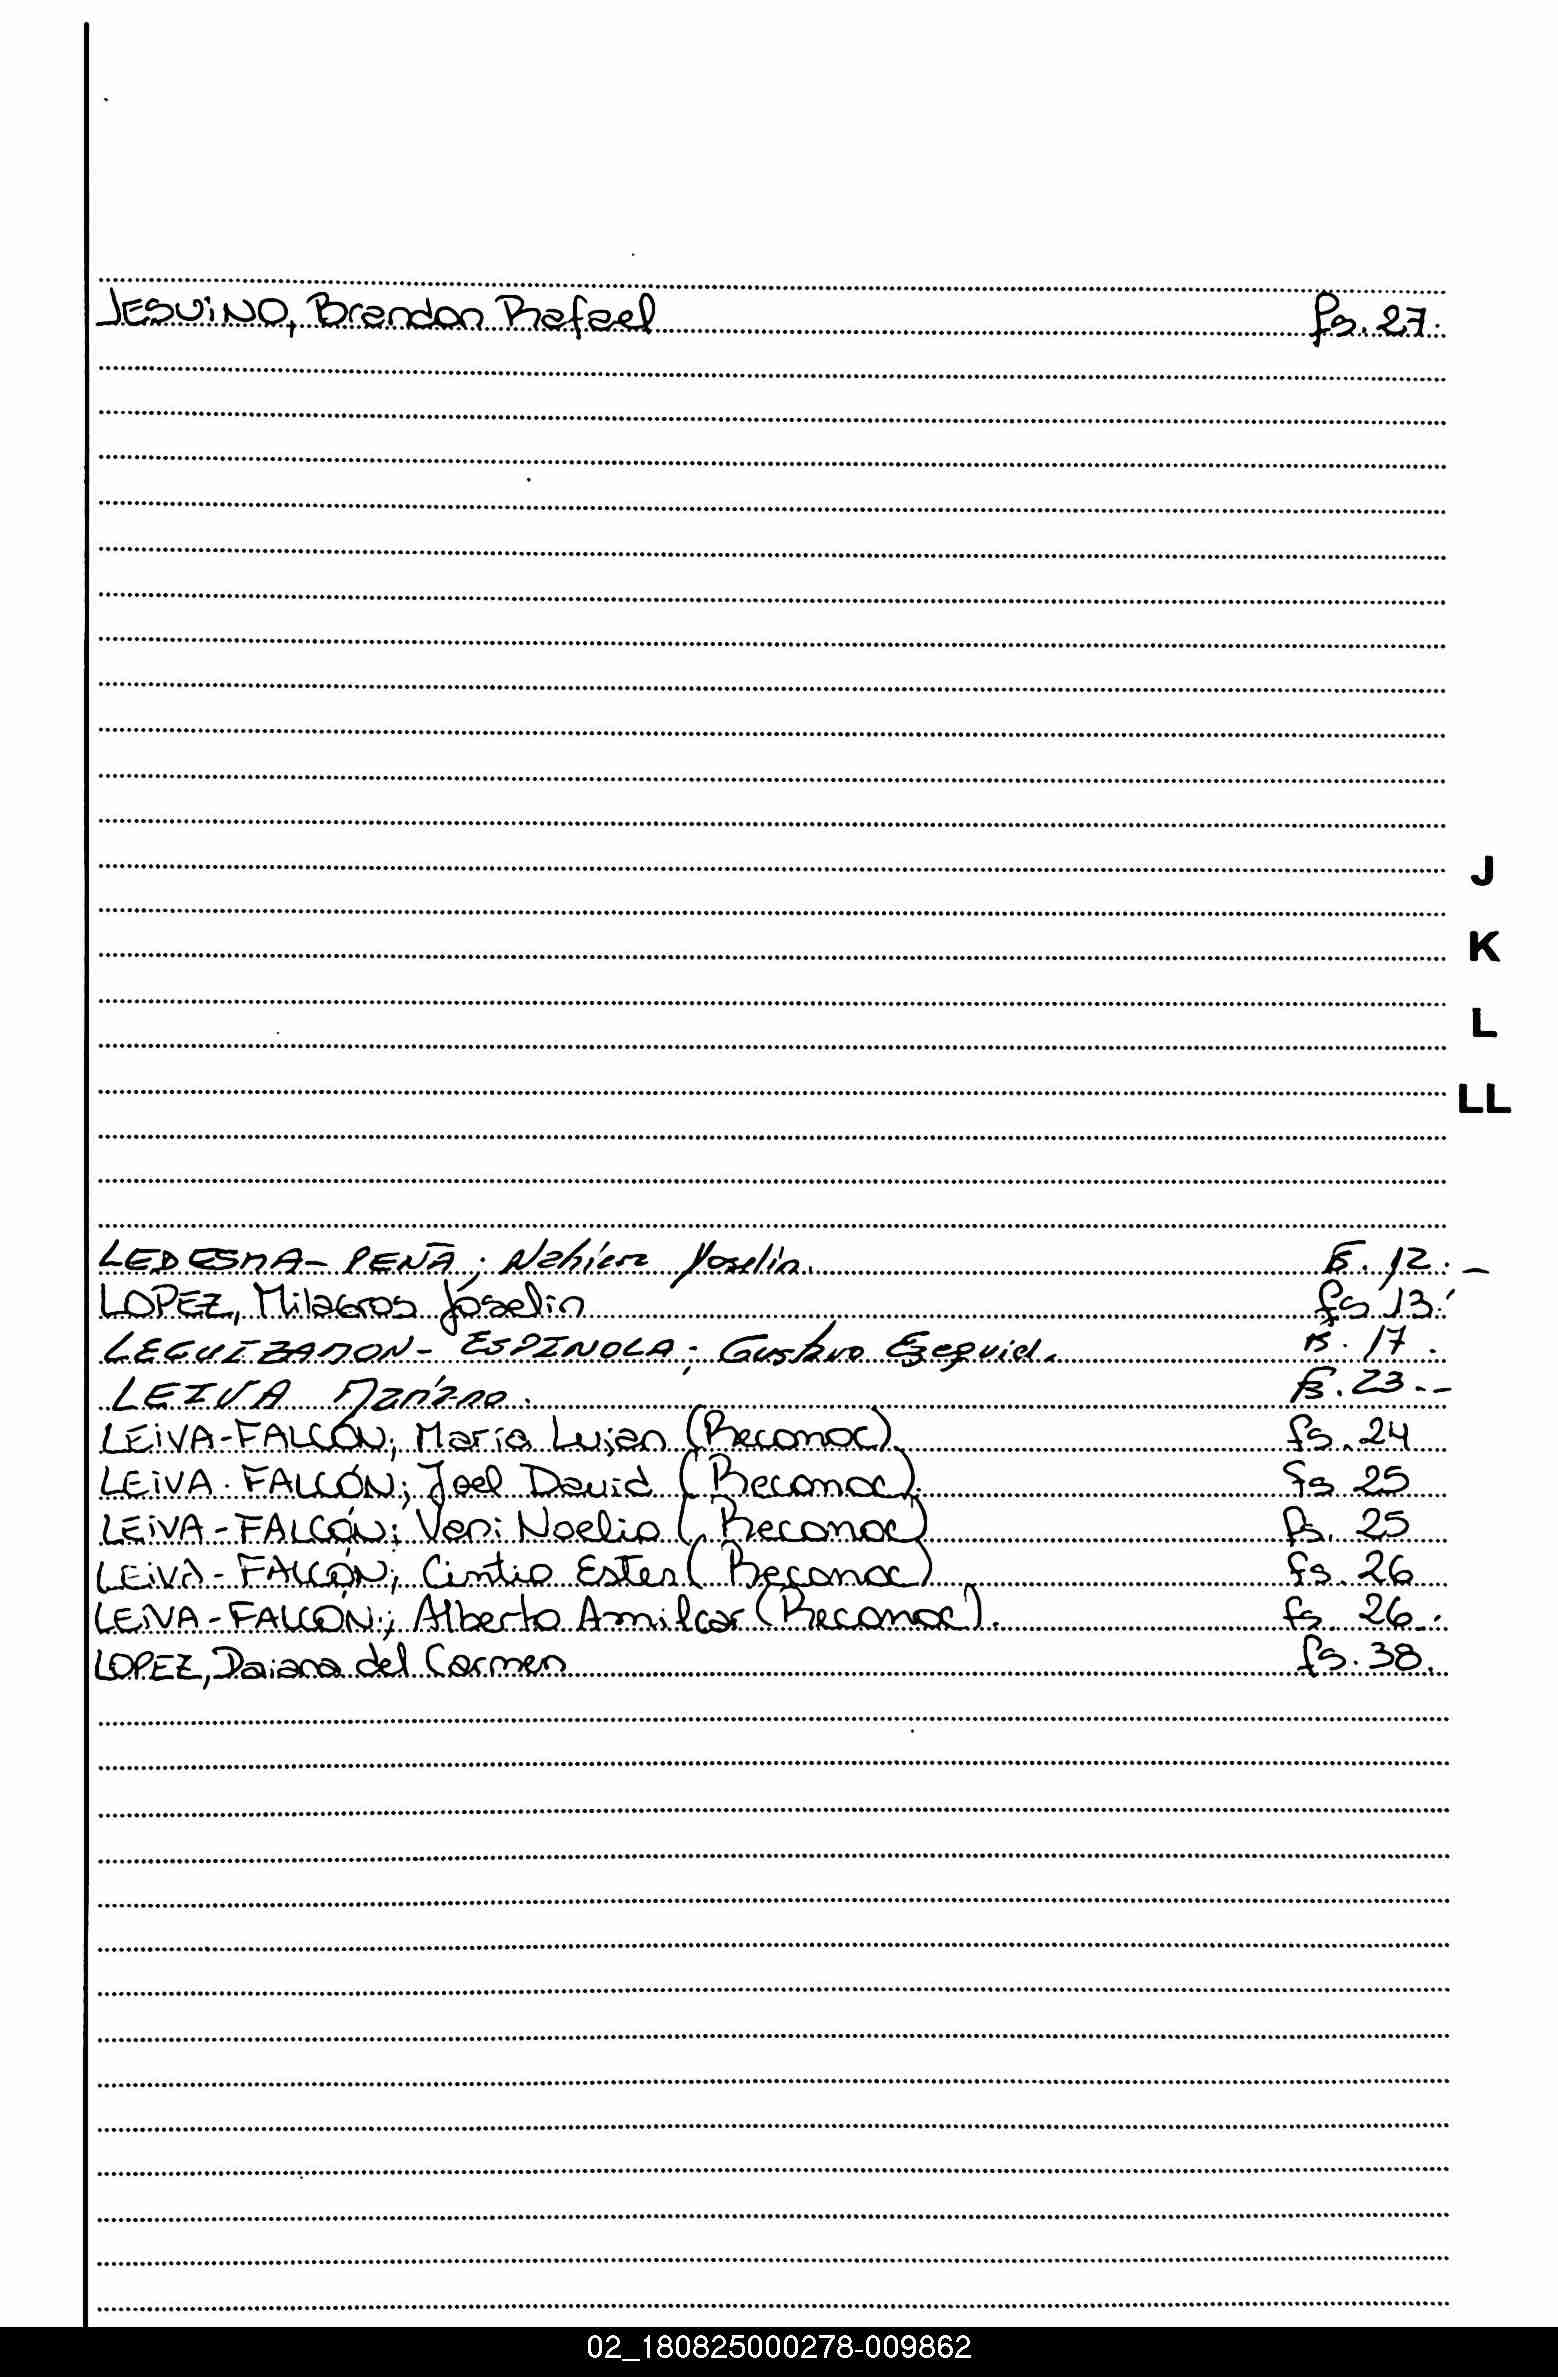 JESUiNO, Brandon Rafael fs. 27.
J
K
L
LL
LEDESMA - PEÑA; Nahiara Yoselin. fs. 12. —
LOPEZ, Milagros Joselin fs 13.
LEGUIZAMON - ESPINOLA; Gustavo Ezequiel. fs. 17.
LEIVA Mariano. fs. 23.-
LEiVA-FALCÓN; María Lujan (Reconoc) fs. 24
LEiVA-FALCÓN; Joel David (Reconoc). fs 25
LEiVA-FALCÓN; Noelia (Reconoc) fs. 25
LEiVA-FALCÓN; Cintia Ester (Reconoc) fs. 26
LEiVA-FALCÓN; Alberto Amilcar (Reconoc). fs 26.
LOPEZ, Daiana del Carmen fs. 38.
02_180825000278-009862